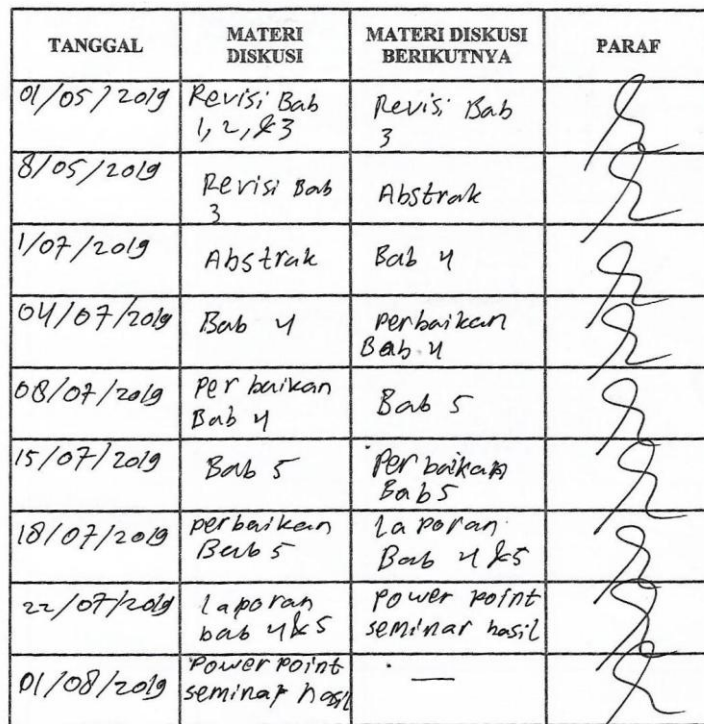 TANGGAL MATERI DISKUSI MATERI DISKUSI BERIKUTNYA PARAF
01/05/2019 Revisi Bab 1, 2, &3 Revisi Bab 3
8/05/2019 Revisi Bab 3 Abstrak
1/07/2019 Abstrak Bab 4
04/07/2019 Bab 4 perbaikan Bab 4
08/07/2019 perbaikan Bab 4 Bab 5
15/07/2019 Bab 5 Perbaikan Bab 5
18/07/2019 perbaikan Bab 5 laporan Bab 4 &5
22/07/2019 laporan bab 4&5 power point seminar hasil
01/08/2019 Power point seminar hasil —